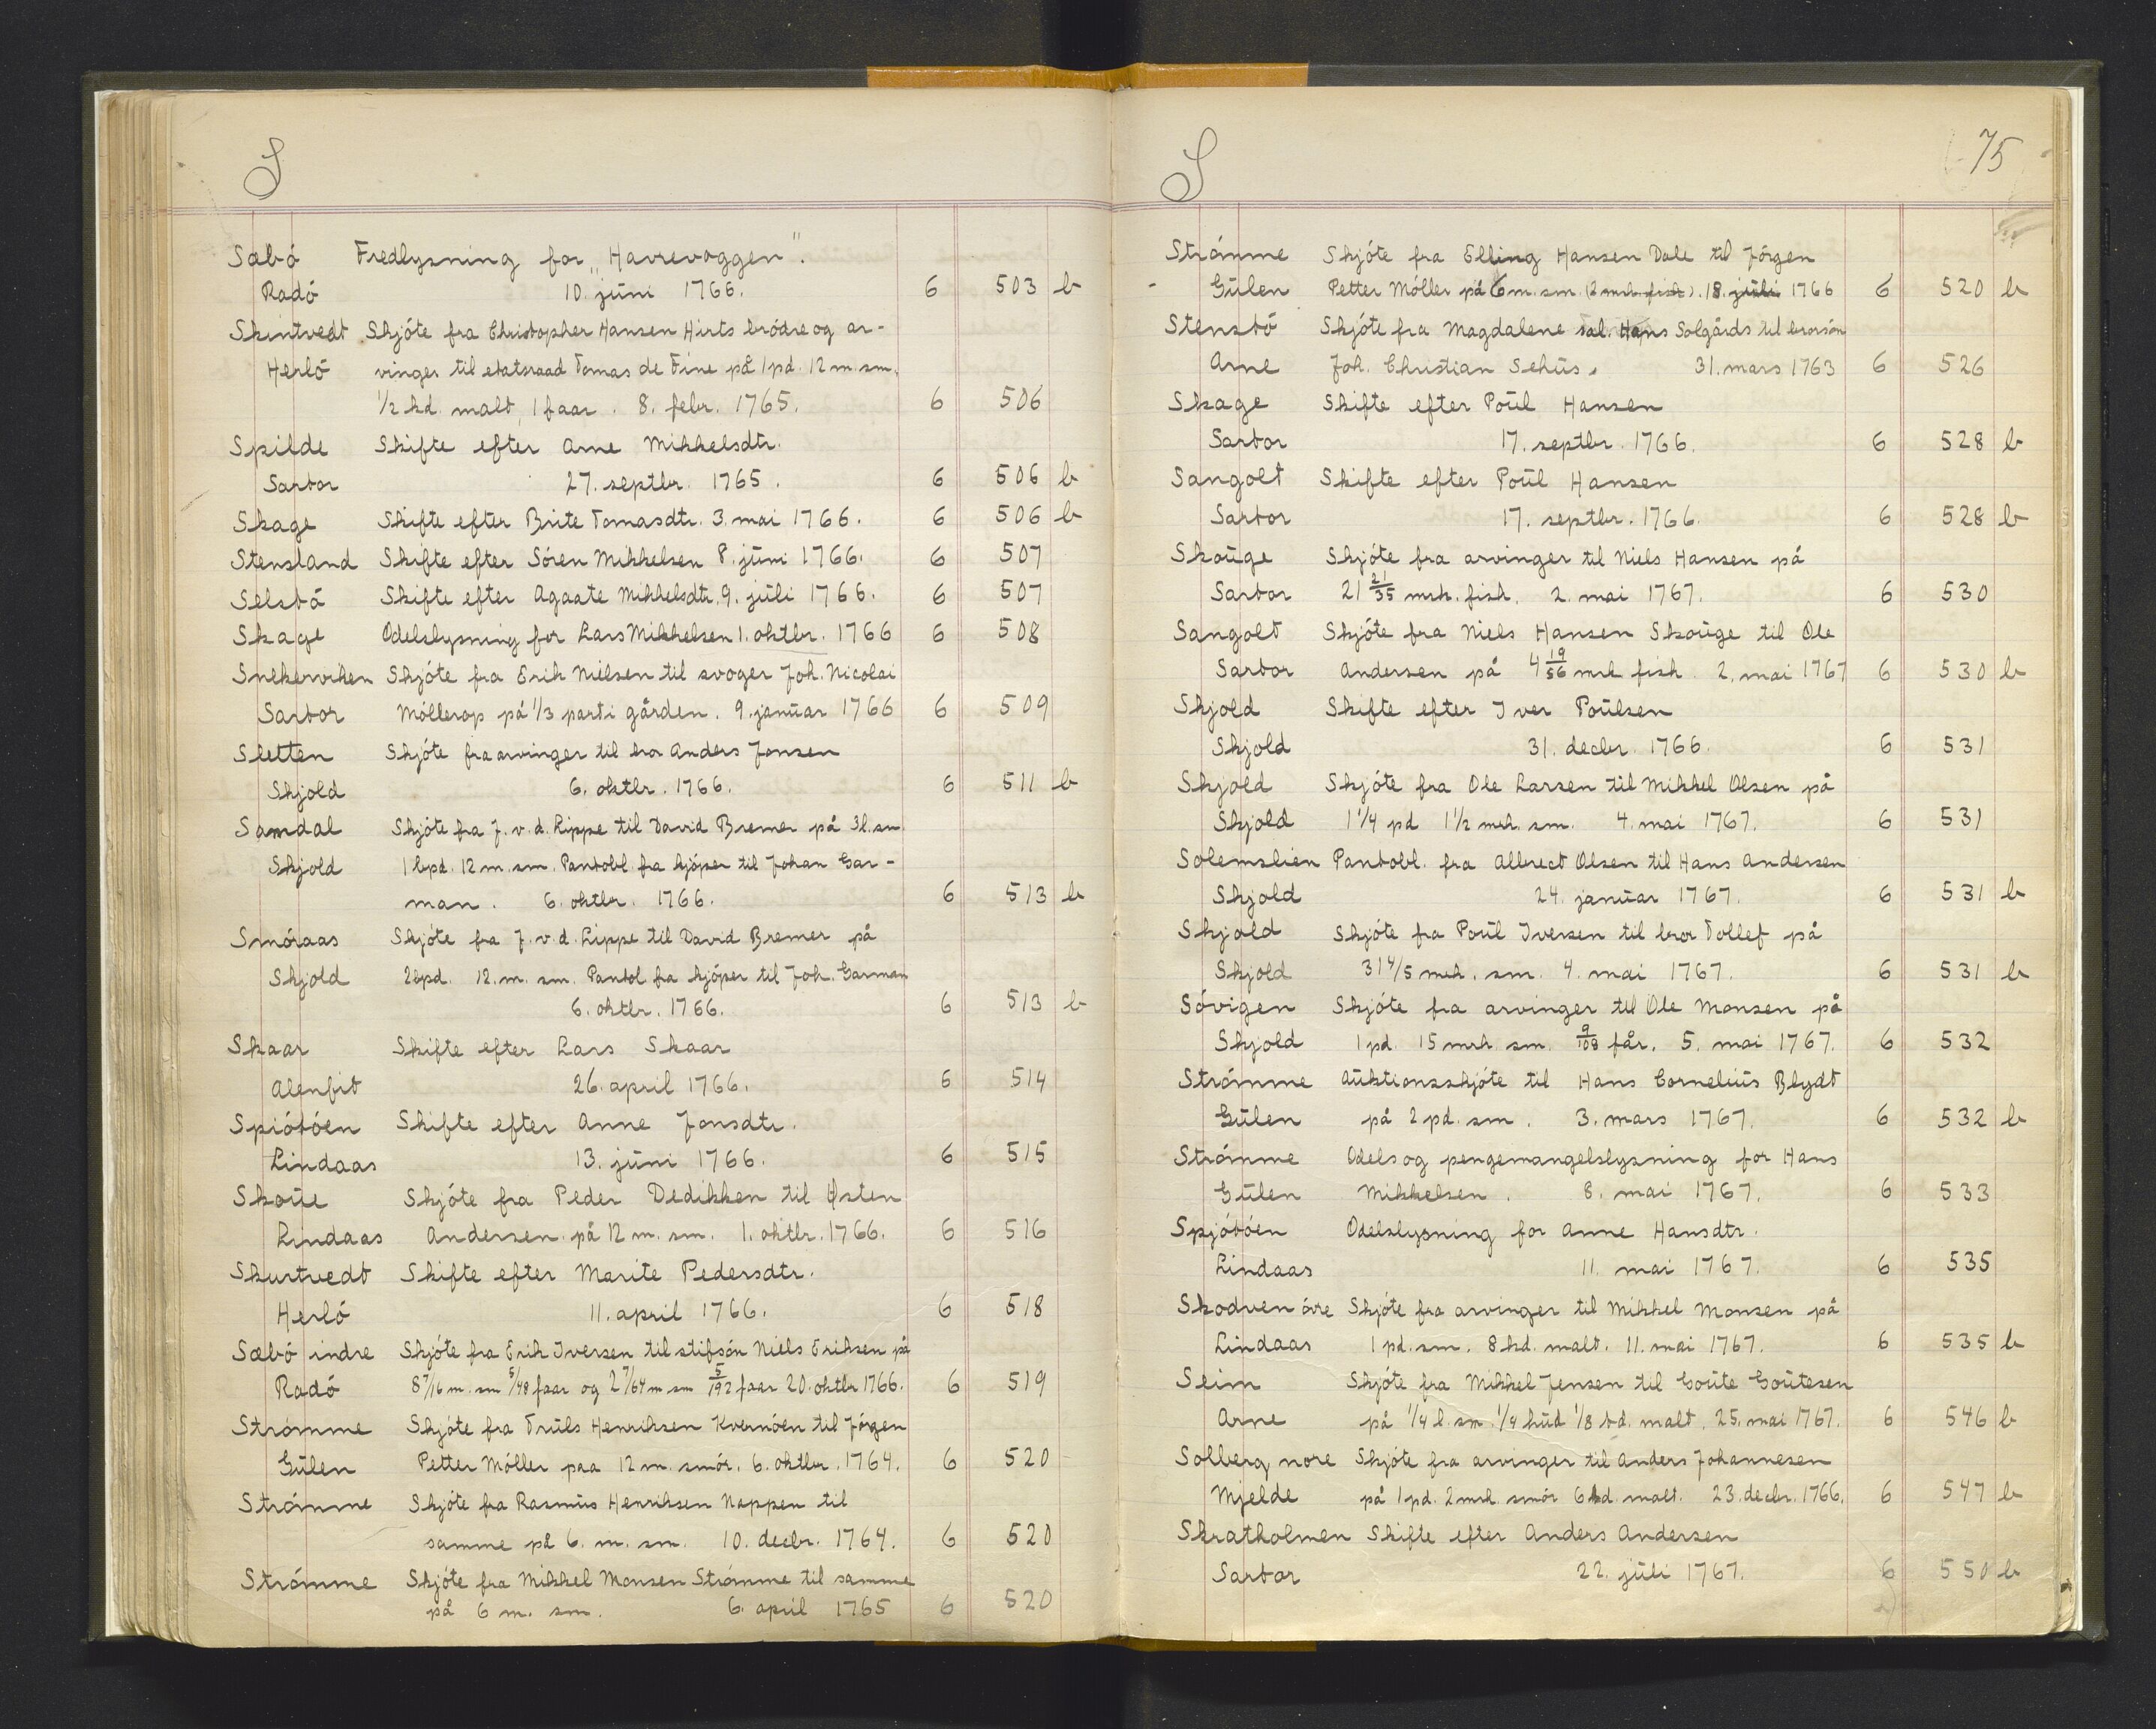 S
Sæbö Fredlysning for "Havrevaggen".
Radö 10. juni 1766. 6 503 b
Skintvedt Skjöte fra Christopher Hansen Hirts brödre og ar-
Herlö vinger til etatsraad Tomas de Fine på 1 pd. 12 m. sm.
1/2 hd. malt, 1 faar. 8. febr. 1765. 6 506
Spilde Skifte efter Arne Mikkelsdtr.
Sartor 27. septbr. 1765. 6 506 b
Skage Skifte efter Brite Tomasdtr. 3. mai 1766. 6 506 b
Stensland Skifte efter Sören Mikkelsen 8. juni 1766. 6 507
Selstö Skifte efter Agaate Mikkelsdtr. 9. juli 1766. 6 507
Skage Odelslysning for Lars Mikkelsen 1. oktbr. 1766 6 508
Snekerviken Skjöte fra Erik Nielsen til svoger Joh. Nicolai
Sartor Möllerop på 1/3 parti gården. 9. januar 1766 6 509
Sletten Skjöte fra arvinger til bror Anders Jonsen
Skjold 6. oktbr. 1766. 6 511 b
Samdal Skjöte fra J. v. d. Lippe til David Bremer på 3 l. sm.
Skjold 1 bpd. 12 m. sm. Pantobl. fra kjöper til Johan Gar-
man. 6. oktbr. 1766. 6 513 b
Smöraas Skjöte fra J. v. d. Lippe til David Bremer på
Skjold 2 bpd. 12. m. sm. Pantol fra kjöper til Joh. Garman
6. oktbr. 1766. 6 513 b
Skaar Skifte efter Lars Skaar
Alenfit 26. april 1766. 6 514
Spiötöen Skifte efter Anne Jonsdtr.
Lindaas 13. juni 1766. 6 515
Skoue Skjöte fra Peder Dedikken til Østen
Lindaas Andersen på 12 m. sm. 1. oktbr. 1766. 6 516
Skurtvedt Skifte efter Marite Pedersdtr.
Herlö 11. april 1766. 6 518
Sæbö indre Skjöte fra Erik Iversen til stifsön Niels Eriksen på
Radö 8 7/16 m. sm 5/48 faar og 2 7/64 m sm 5/192 faar 20. oktbr 1766. 6 519
Strömme Skjöte fra Truls Henriksen Kvernöen til Jörgen
Gulen Petter Möller paa 12 m. smör. 6. oktbr. 1764. 6 520
Strömme Skjöte fra Rasmus Henriksen Nappen til
samme på 6. m. sm. 10. decbr. 1764. 6 520
Strömme Skjöte fra Mikkel Monsen Strömme til samme
på 6 m. sm. 6. april 1765 6 520
S 75
Strömme Skjöte fra Elling Hansen Dale til Jörgen
Gulen Petter Möller på 6 m. sm. (2 mrk. fisk). 18. juli 1766 6 520 b
Stenstö Skjöte fra Magdalene sal. Hans Solgårds til brorsön
Arne Joh. Christian Sehus. 31. mars 1763 6 526
Skage Skifte efter Poul Hansen
Sartor 17. septbr. 1766. 6 528 b
Sangolt Skifte efter Poul Hansen
Sartor 17. septbr. 1766. 6 528 b
Skouge Skjöte fra arvinger til Niels Hansen på
Sartor 21 21/35 mrk. fisk. 2. mai 1767. 6 530
Sangolt Skjöte fra Niels Hansen Skouge til Ole
Sartor Andersen på 4 19/56 mrk fisk. 2. mai 1767 6 530 b
Skjold Skifte efter Iver Poulsen
Skjold 31. decbr. 1766. 6 531
Skjold Skjöte fra Ole Larsen til Mikkel Olsen på
Skjold 1 1/4 pd 1 1/2 mrk. sm. 4. mai 1767. 6 531
Solemslien Pantobl. fra Albrect Olsen til Hans Andersen
Skjold 24. januar 1767. 6 531 b
Skjold Skjöte fra Poul Iversen til bror Tollef på
Skjold 31 4/5 mrk. sm. 4. mai 1767. 6 531 b
Sövigen Skjöte fra arvinger til Ole Monsen på
Skjold 1 pd. 15 mrk sm. 9/108 får. 5. mai 1767. 6 532
Strömme Auktionsskjöte til Hans Cornelius Blydt
Gulen på 2 pd. sm. 3. mars 1767. 6 532 b
Strömme Odels og pengemangelslysning for Hans
Gulen Mikkelsen. 8. mai 1767. 6 533
Spjötöen Odelslysning for Anne Hansdtr.
Lindaas 11. mai 1767. 6 535
Skodven övre Skjöte fra arvinger til Mikkel Monsen på
Lindaas 1 pd. sm. 8 hd. malt. 11. mai 1767. 6 535 b
Seim Skjöte fra Mikkel Jensen til Goute Goutesen
Arne på 1/4 l. sm. 1/4 hud 1/8 td. malt. 25. mai 1767. 6 546 b
Solberg nore Skjöte fra arvinger til Anders Johannesen
Mjelde på 1 pd. 2 mrk. smör 6 hd. malt. 23. decbr. 1766. 6 547 b
Skratholmen Skifte efter Anders Andersen
Sartor 22. juli 1767. 6 550 b